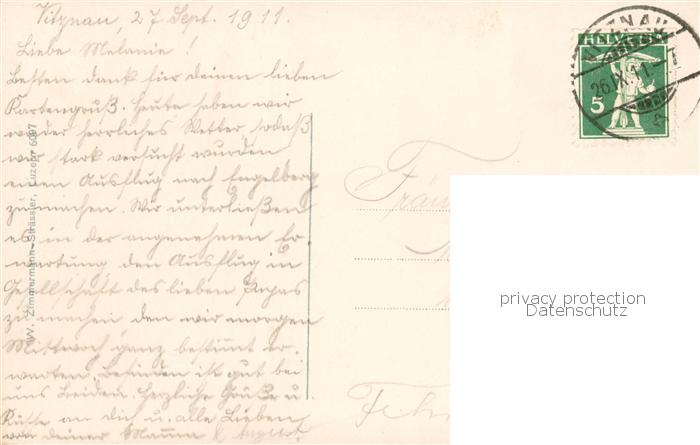 Vitznau, 27 Sept. 1911.
Liebe Melanie!
Besten dank für deinen lieben
Kartengruß. Heute haben wir
wieder herrliches Wetter, sodaß
wir stark versucht wurden
einen Ausflug nach Engelberg
zu machen. Wir unterließen
es in der angenehmen Er-
wartung den Ausflug in
Gesellschaft des lieben Papas
zu machen den wir morgen
Mittwoch ganz bestimmt er-
warten. Befinden ist gut bei
uns beiden. Herzliche Grüße u.
Küsse an dich u. alle Lieben
von deiner Mama & August
W. Zimmermann-Strässler, Luzern 6097
VITZNAU
26.IX.11.
HELVETIA
5
Fräu
privacy protection
Datenschutz